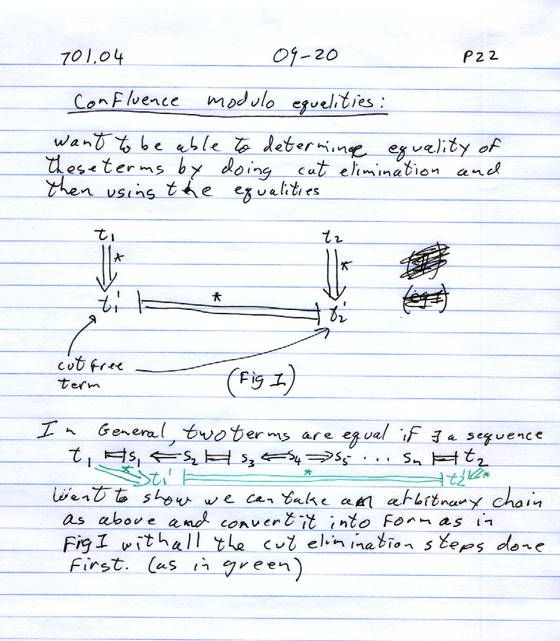 701.04 09-20 P22
Confluence modulo equalities:
want to be able to determine equality of
these terms by doing cut elimination and
then using the equalities
t₁ t₂
* *
t₁' * t₂'
cut free
term
(Fig I)
In General, two terms are equal if ∃ a sequence
t₁ |=| s₁ ⇐ s₂ |=| s₃ ⇐ s₄ ⇒ s₅ ... sₙ |=| t₂
* t₁' * t₂' *
Want to show we can take an arbitrary chain
as above and convert it into Form as in
Fig I with all the cut elimination steps done
First. (as in green)